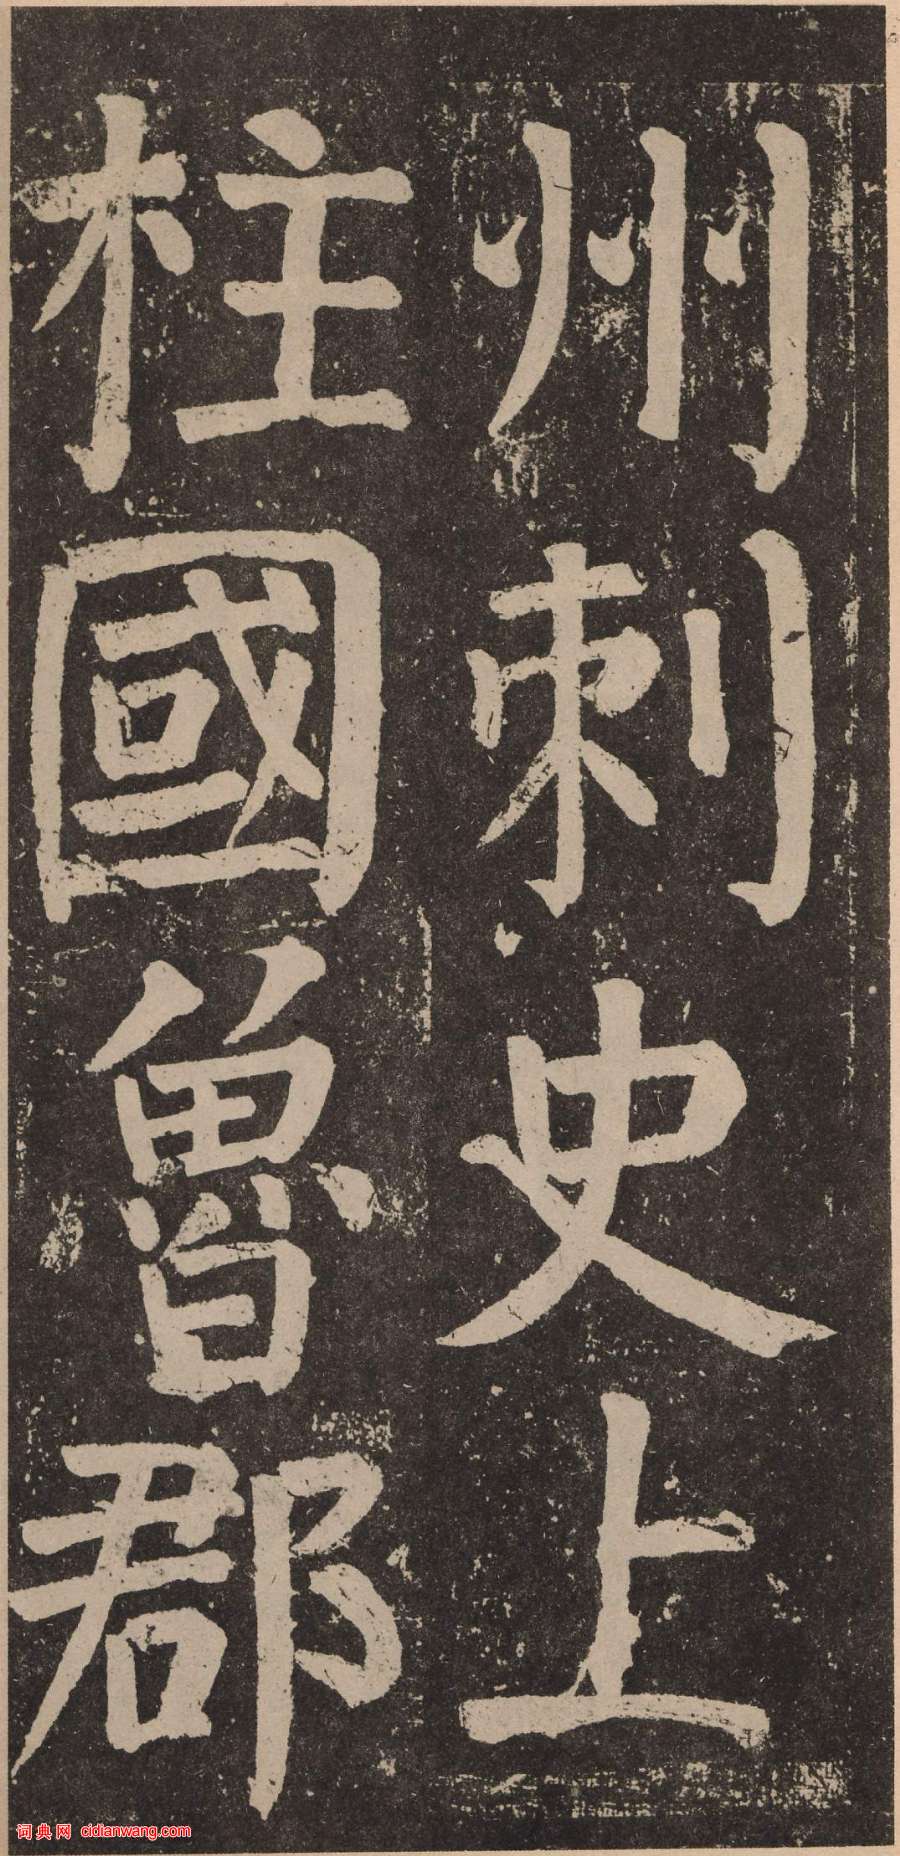 州刺史上
柱國魯郡
词典网 cidianwang.com